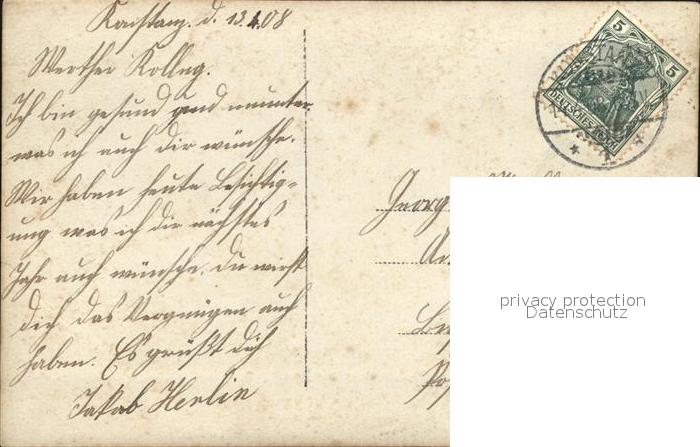 Konstanz. d. 13.4.08
Werther Kolleg.
Ich bin gesund und munter
was ich auch dir wünsche.
Wir haben heute Besichtig-
ung was ich dir nächstes
Jahr auch wünsche. Du wirst
dich das Vergnügen auch
haben. Es grüßt dich
Jakob Herlin
5
5
DEUTSCHES REICH
Georg
privacy protection
Datenschutz